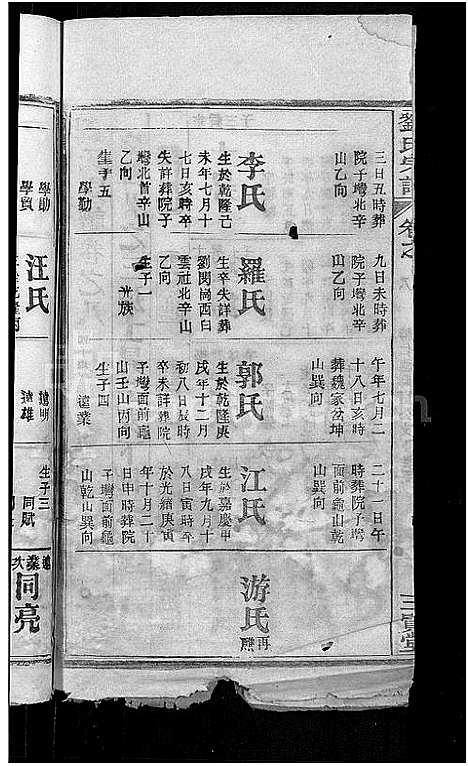 劉氏宗譜
卷之
三賢堂
三日五時葬
院子壪北辛
山乙向
李氏
生於乾隆己
未年七月十
七日亥時卒
失詳葬院子
壪北首辛山
乙向
生子五
學勤
九日未時葬
院子壪北辛
山乙向
羅氏
生卒失詳葬
劉閔崗西臼
雲社北辛山
生子一
光族
午年七月二
十八日亥時
葬魏家岔坤
山巽向
郭氏
生於乾隆庚
戌年十二月
初八日辰時
卒未詳葬院
子壪面前龜
山壬山丙向
生子四
遠業
二十一日午
時葬院子壪
面前龜山乾
山巽向
江氏
生於嘉慶甲
戌年九月十
九日寅時卒
於光緒庚寅
年十月二十
日申時葬院
子壪面前龜
山乾山巽向
游氏
再醮
學勛
學貿
汪氏
遠明
遠雄
生子三
同賦
遠業次
同亮